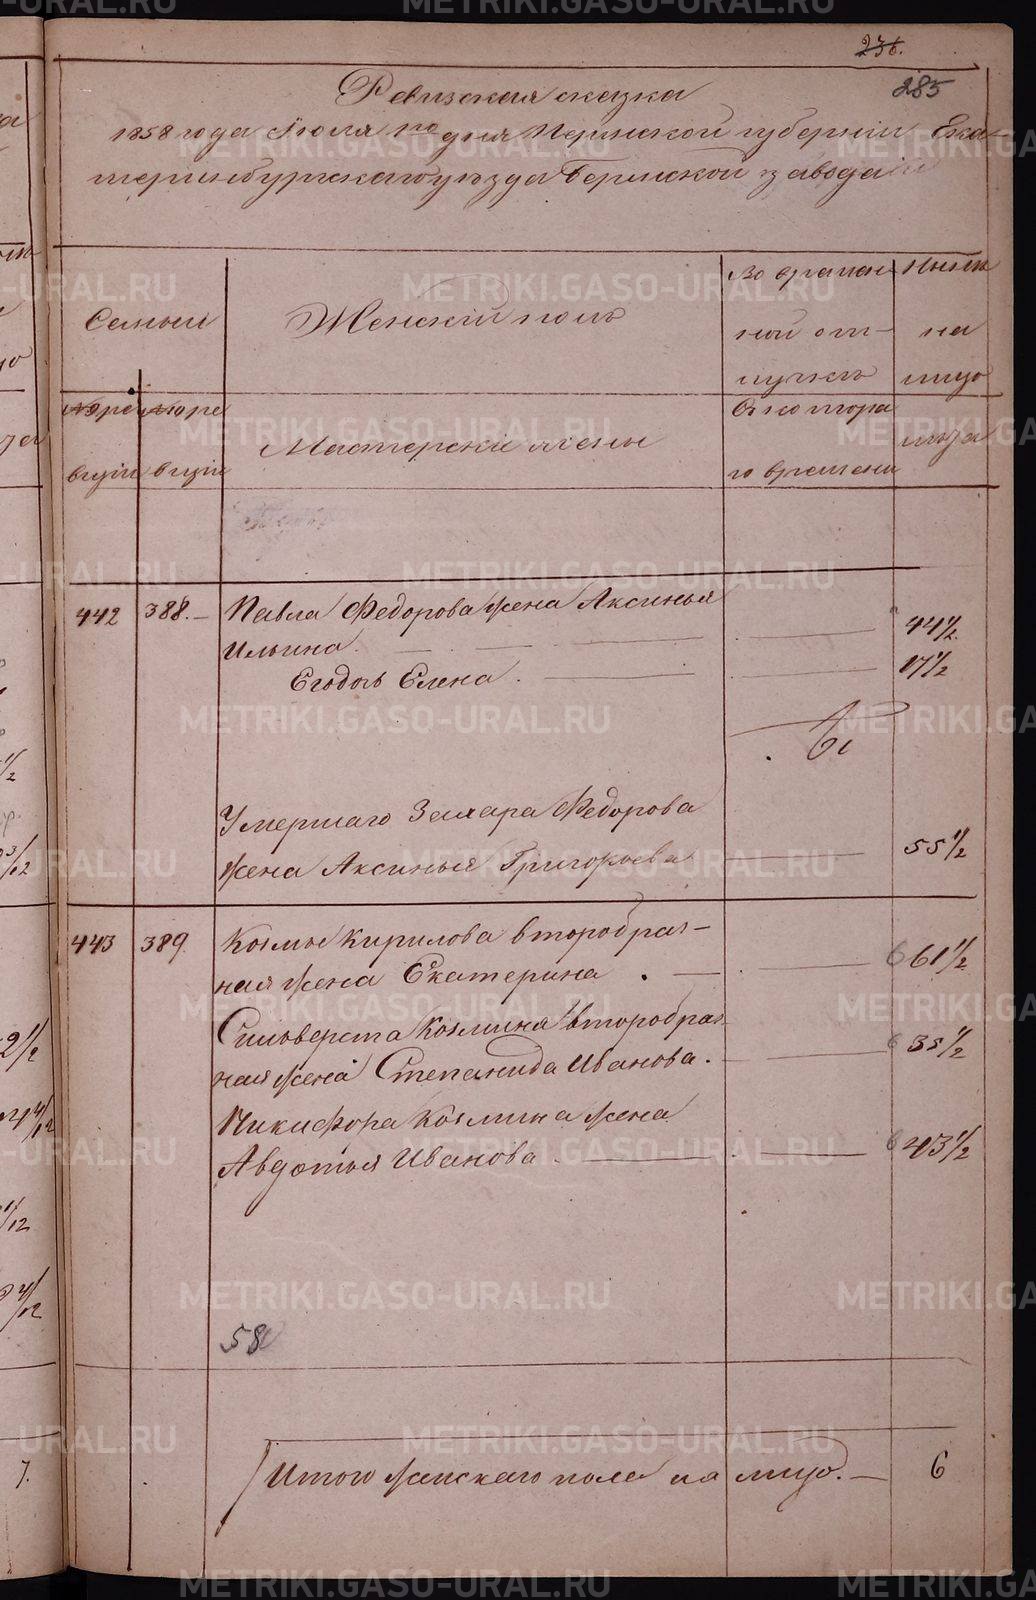 236.
285
Ревизская сказка
1858 года Июля 1го дня Пермской губернии Ека-
теринбургскаго уезда Берг­ской заводами
Семьи
Женский полъ
Во времен
ной от-
лучкѣ
Нынѣ
на
лицо
№ пре
визіи
№ по ре
визіи
Мастерски жены
Съ котора
го времени
лѣта
442
388.-
Павла Федорова жена Аксинья
Ильина.
44 1/2
Его дочь Елена.
17 1/2
Умершаго Захара Федорова
жена Аксинья Григорьева
55 1/2
443
389.
Козмы Кирилова второбрач-
ная жена Екатерина.
6 61 1/2
Сильверста Козмина второбрач
ная жена Степанида Иванова.
6 35 1/2
Никифора Козмина жена
Авдотья Иванова.
6 43 1/2
58
Итого женскаго пола на лицо. — 6
METRIKI.GASO-URAL.RU